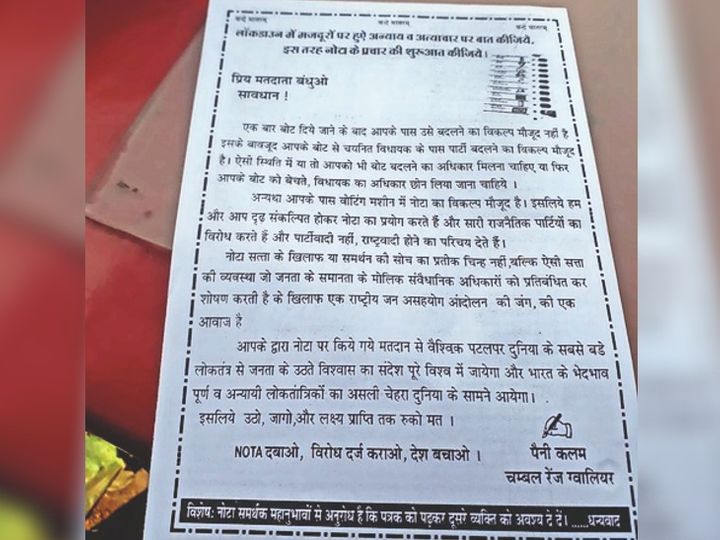 वन्दे मातरम् वन्दे मातरम् वन्दे मातरम्
लॉकडाउन में मजदूरों पर हुऐ अन्याय व अत्याचार पर बात कीजिये,
इस तरह नोटा के प्रचार की शुरूआत कीजिये।
प्रिय मतदाता बंधुओ
सावधान !
एक बार बोट दिये जाने के बाद आपके पास उसे बदलने का विकल्प मौजूद नहीं है
इसके बावजूद आपके बोट से चयनित विधायक के पास पार्टी बदलने का विकल्प मौजूद
है। ऐसी स्थिति में या तो आपको भी बोट बदलने का अधिकार मिलना चाहिए या फिर
आपके बोट को बेचते, विधायक का अधिकार छीन लिया जाना चाहिये ।
अन्यथा आपके पास वोटिंग मशीन में नोटा का विकल्प मौजूद है। इसलिये हम
और आप दृढ़ संकल्पित होकर नोटा का प्रयोग करते हैं और सारी राजनैतिक पार्टियों का
विरोध करते हैं और पार्टीवादी नहीं, राष्ट्रवादी होने का परिचय देते हैं।
नोटा सत्ता के खिलाफ या समर्थन की सोच का प्रतीक चिन्ह नहीं,बल्कि ऐसी सत्ता
की व्यवस्था जो जनता के समानता के मोलिक संवैधानिक अधिकारों को प्रतिबंधित कर
शोषण करती है के खिलाफ एक राष्ट्रीय जन असहयोग आंदोलन की जंग, की एक
आवाज है
आपके द्वारा नोटा पर किये गये मतदान से वैश्विक पटलपर दुनिया के सबसे बडे
लोकतंत्र से जनता के उठते विश्वास का संदेश पूरे विश्व में जायेगा और भारत के भेदभाव
पूर्ण व अन्यायी लोकतांत्रिकों का असली चेहरा दुनिया के सामने आयेगा।
इसलिये उठो, जागो,और लक्ष्य प्राप्ति तक रुको मत ।
NOTA दबाओ, विरोध दर्ज कराओ, देश बचाओ ।
पैनी कलम
चम्बल रेंज ग्वालियर
विशेष: नोटा समर्थक महानुभावों से अनुरोध है कि पत्रक को पढ़कर दूसरे व्यक्ति को अवश्य दे दें। ......धन्यवाद